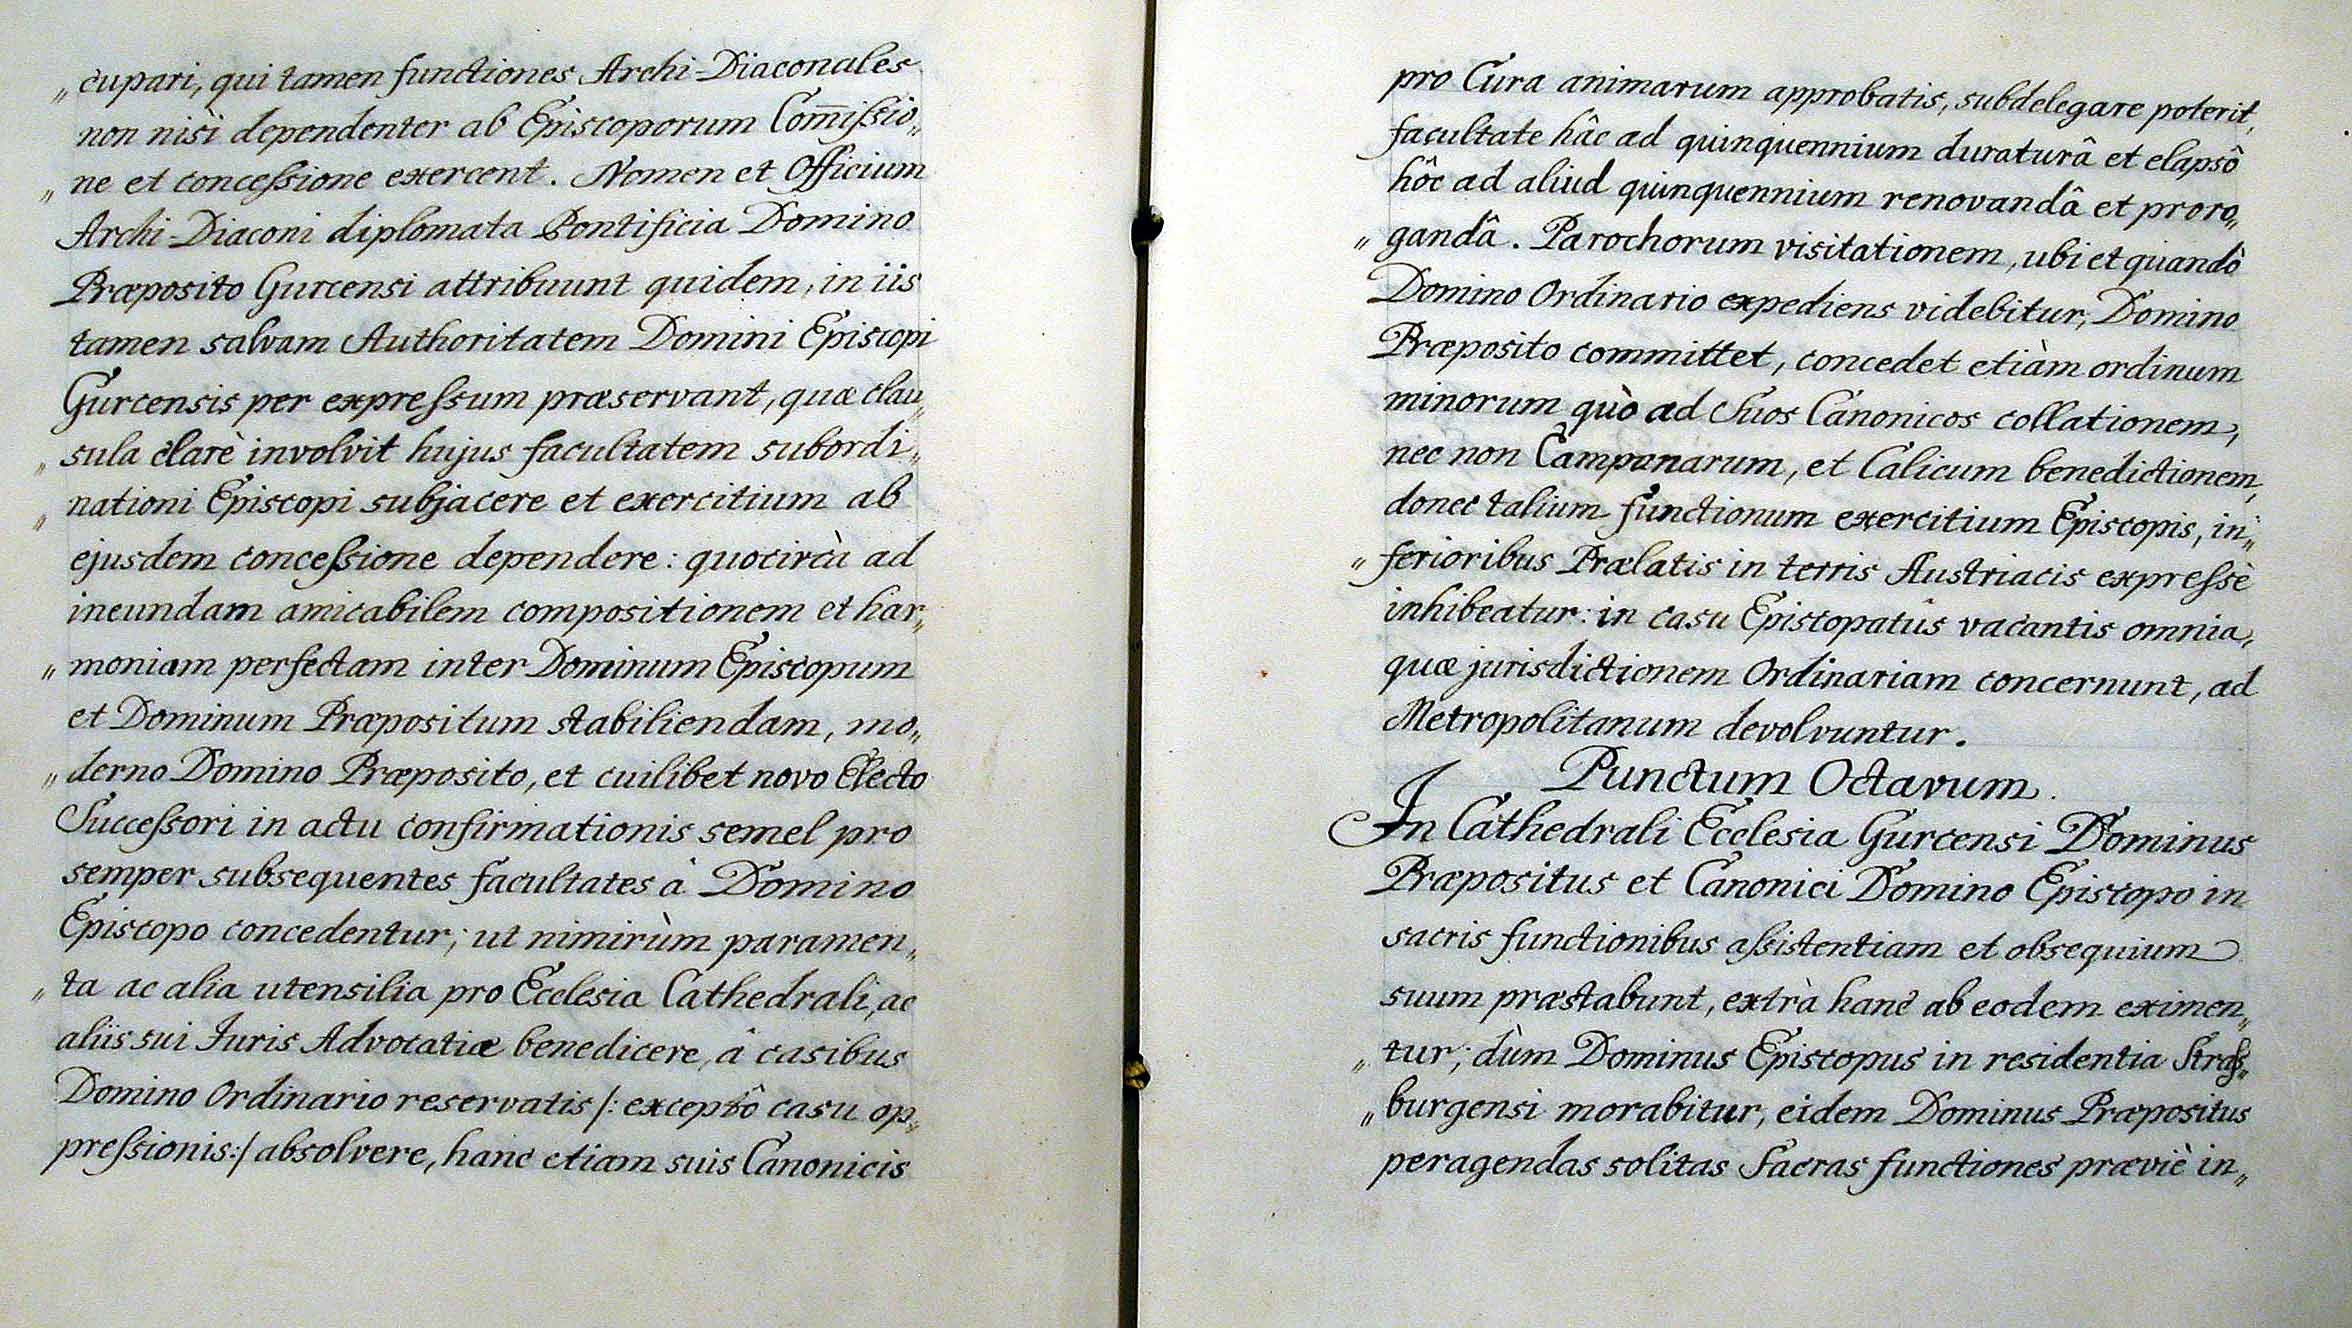 „cupari, qui tamen functiones Archi-Diaconales
non nisi dependenter ab Episcoporum Com̅ißio„
„ne et conceßione exercent. Nomen et Officium
Archi-Diaconi diplomata Pontificia Domino
Præposito Gurcensi attribuunt quidem, in iis
tamen salvam Authoritatem Domini Episcopi
Gurcensis per expreßum præservant, quæ clau„
„sula clarè involvit hujus facultatem subordi„
„nationi Episcopi subjacere et exercitium ab
ejusdem conceßione dependere: quocircà ad
ineundam amicabilem compositionem et har„
„moniam perfectam inter Dominum Episcopum
et Dominum Præpositum stabiliendam, mo„
„derno Domino Præposito, et cuilibet novo Electo
Succeßori in actu confirmationis semel pro
semper subsequentes facultates à Domino
Episcopo concedentur; ut nimirùm paramen„
„ta ac alia utensilia pro Ecclesia Cathedrali, ac
aliis sui Juris Advocatiæ benedicere, â casibus
Domino Ordinario reservatis /: exceptô casu op„
preßionis :/ absolvere, hanc etiam suis Canonicis
pro Cura animarum approbatis, subdelegare poterit,
facultate hâc ad quinquennium duraturâ et elapsô
hôc ad aliud quinquennium renovandâ et proro„
„gandâ. Parochorum visitationem, ubi et quandò
Domino Ordinario expediens videbitur, Domino
Præposito committet, concedet etiàm ordinum
minorum quò ad Suos Canonicos collationem,
nec non Campanarum, et Calicum benedictionem,
donec talium functionum exercitium Episcopis, in„
„ferioribus Prælatis in terris Austriacis expreßè
inhibeatur: in casu Episcopatûs vacantis omnia,
quæ jurisdictionem Ordinariam concernunt, ad
Metropolitanum devolvuntur.
Punctum Octavum.
In Cathedrali Ecclesia Gurcensi Dominus
Præpositus et Canonici Domino Episcopo in
sacris functionibus aßistentiam et obsequium
suum præstabunt, extrà hanc ab eodem eximen„
„tur; dùm Dominus Episcopus in residentia Straß„
„burgensi morabitur, eidem Dominus Præpositus
peragendas solitas Sacras functiones præviè in„